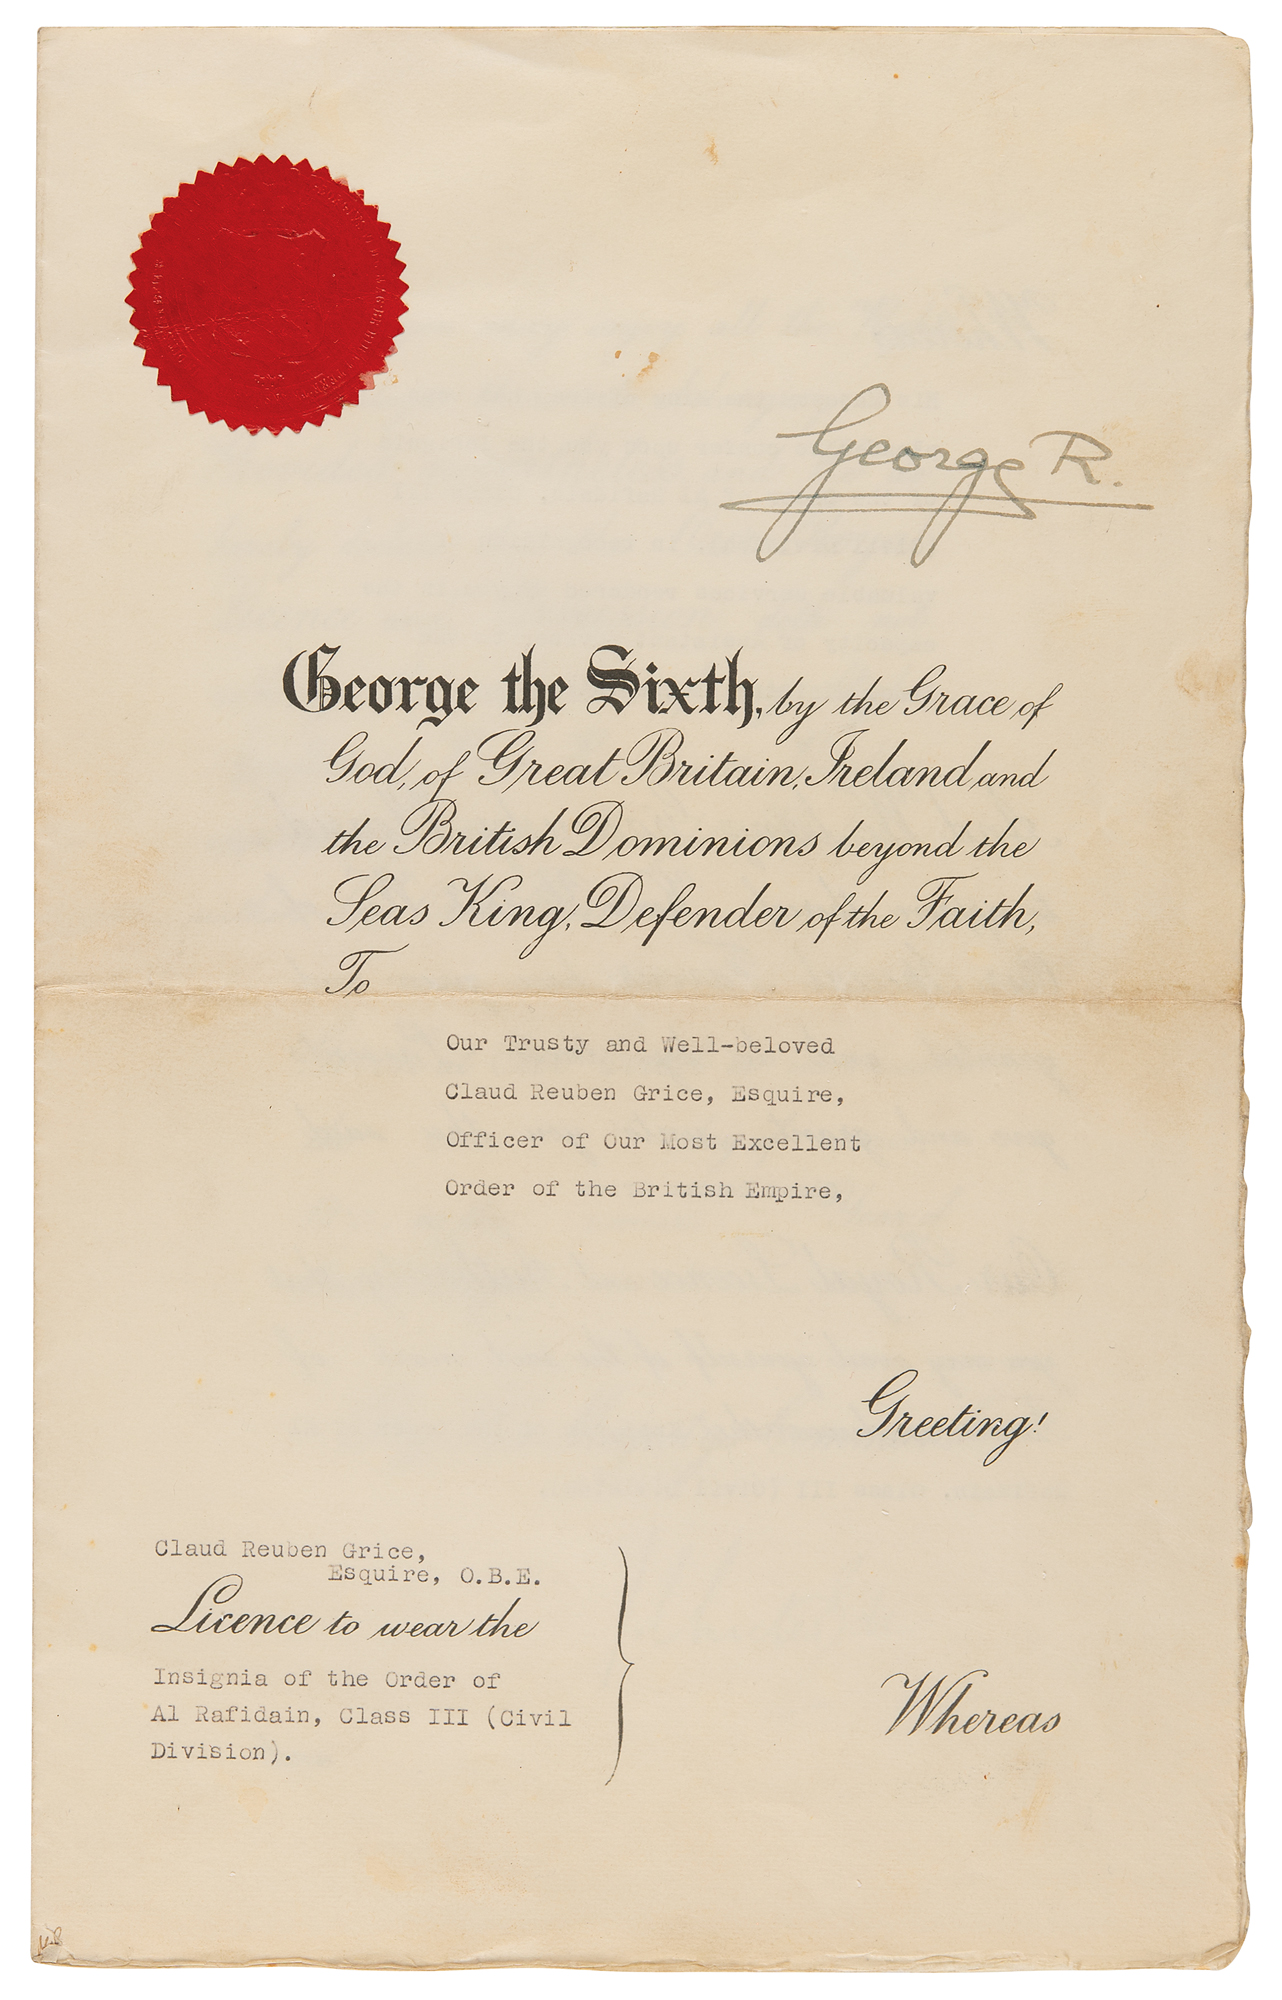 George R.
George the Sixth, by the Grace of
God, of Great Britain, Ireland and
the British Dominions beyond the
Seas King, Defender of the Faith,
To
Our Trusty and Well-beloved
Claud Reuben Grice, Esquire,
Officer of Our Most Excellent
Order of the British Empire,
Greeting!
Claud Reuben Grice,
Esquire, O.B.E.
Licence to wear the
Insignia of the Order of
Al Rafidain, Class III (Civil
Division).
Whereas